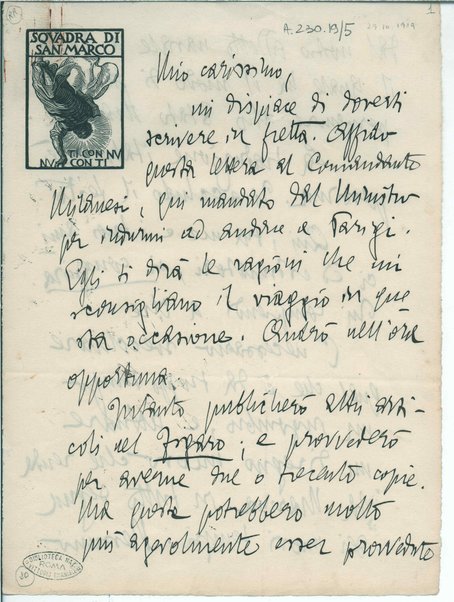 1
A.230.19/5
29 IV 1919
SQVADRA DI
SAN MARCO
TI CON NV
NV CON TI
Mio carissimo,
mi dispiace di doverti
scrivere in fretta. Affido
questa lettera al Comandante
Milanesi, qui mandato dal Ministro
per indurmi ad andare a Parigi.
Egli ti dirà le ragioni che mi
sconsigliano il viaggio in que
sta occasione. Andrò nell'ora
opportuna.
Intanto pubblicherò altri arti-
coli nel Figaro; e provvederò
per averne due o trecento copie.
Ma queste potrebbero molto
più agevolmente esser provvedute
BIBLIOTECA NAZ.
ROMA
VITTORIO EMANUELE